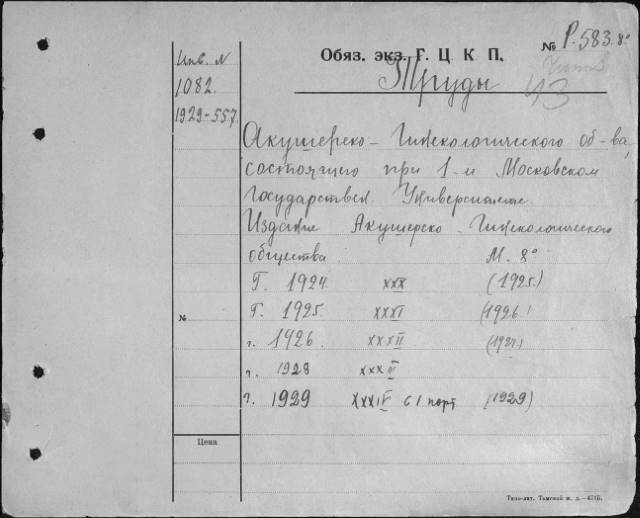 Инв. N
1082.
1929-557.
№ Р-583. 8°
Обяз. экз. Г. Ц. К. П.
Труды
43
Акушерско-Гинекологического об-ва,
состоящего при 1-м Московском
Государствен. Университете.
Издание Акушерско-Гинекологического
общества М. 8°
Г. 1924. XXX (1925.)
Г. 1925 XXXI (1926.)
№
г. 1926. XXXII (1927.)
г. 1928 XXXIII
г. 1929 XXXIV с 1 порт (1929)
Цена
Типо-лит. Томской ж. д.